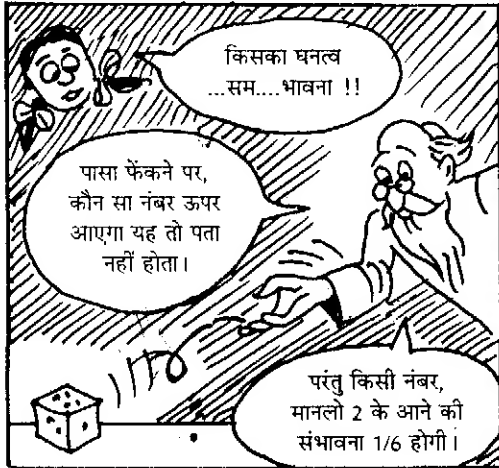 किसका घनत्व
...सम....भावना !!
पासा फेंकने पर,
कौन सा नंबर ऊपर
आएगा यह तो पता
नहीं होता।
परंतु किसी नंबर,
मानलो 2 के आने की
संभावना 1/6 होगी।